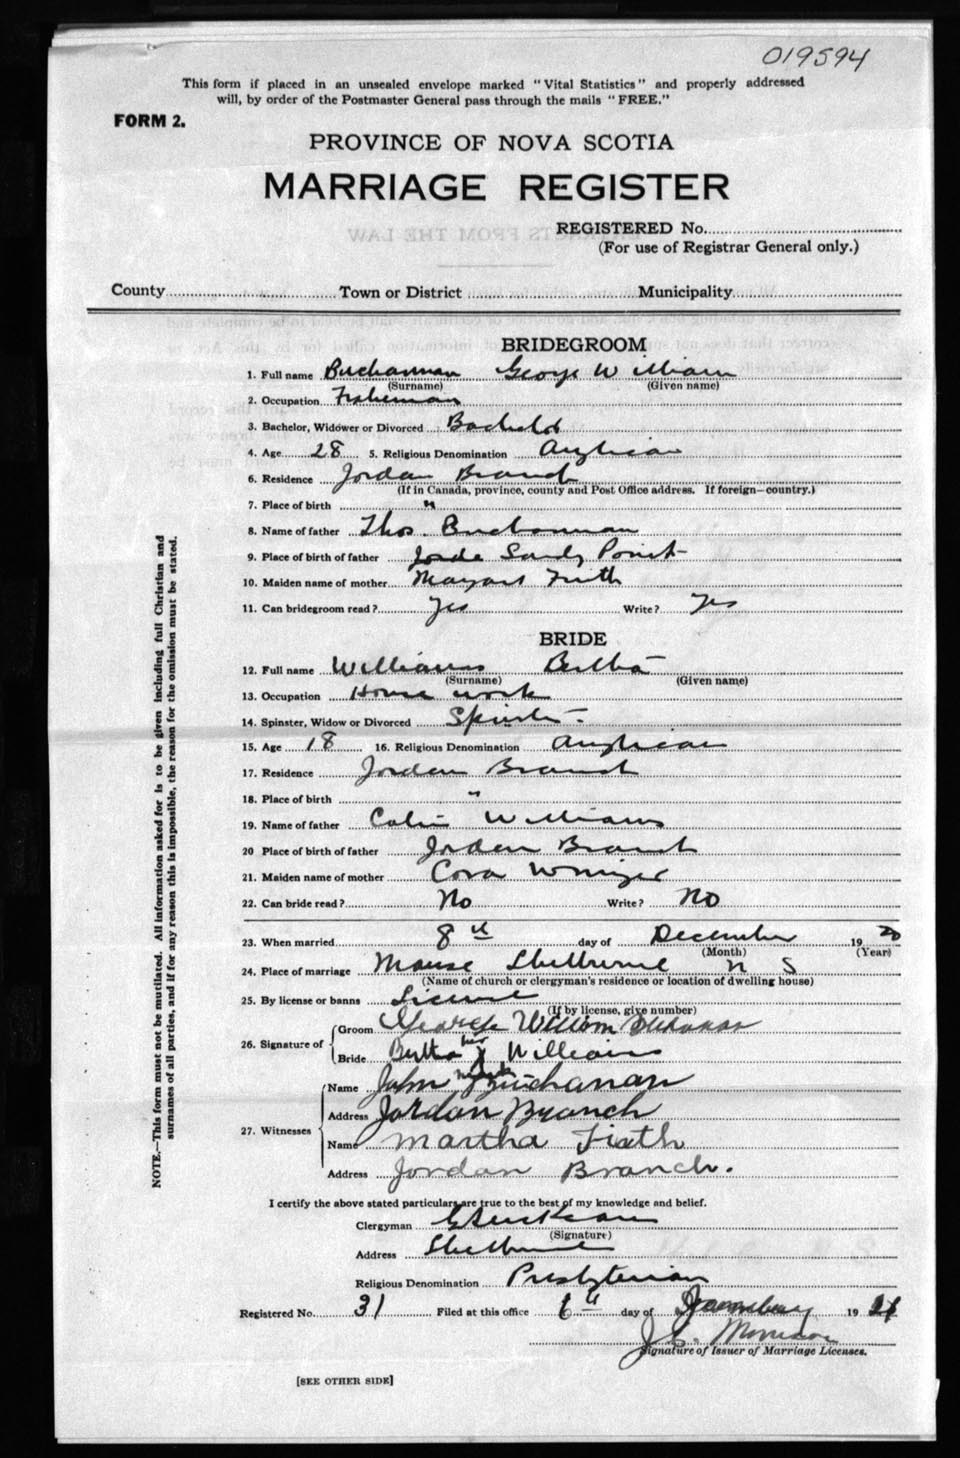 019594
This form if placed in an unsealed envelope marked "Vital Statistics" and properly addressed
will, by order of the Postmaster General pass through the mails "FREE."
FORM 2.
PROVINCE OF NOVA SCOTIA
MARRIAGE REGISTER
REGISTERED No.
(For use of Registrar General only.)
County Town or District Municipality
BRIDEGROOM
1. Full name Buchannan George William
(Surname) (Given name)
2. Occupation Fisherman
3. Bachelor, Widower or Divorced
4. Age 28 5. Religious Denomination Anglican
6. Residence Jordan Branch
(If in Canada, province, county and Post Office address. If foreign—country.)
7. Place of birth "
8. Name of father Thos. Buchannan
9. Place of birth of father Sandy Point
10. Maiden name of mother
11. Can bridegroom read? Yes Write? Yes
BRIDE
12. Full name Williams Bertha
(Surname) (Given name)
13. Occupation House work
14. Spinster, Widow or Divorced Spinster
15. Age 18 16. Religious Denomination Anglican
17. Residence Jordan Branch
18. Place of birth "
19. Name of father Colin Williams
20 Place of birth of father Jordan Branch
21. Maiden name of mother Cora
22. Can bride read? No Write? No
23. When married 8th day of December 1920
(Month) (Year)
24. Place of marriage Manse Shelburne N S
(Name of church or clergyman's residence or location of dwelling house)
25. By license or banns License
(If by license, give number)
26. Signature of Groom George William Buchanan
Bride Bertha her X mark Williams
27. Witnesses Name John Buchanan
Address Jordan Branch
Name Martha Firth
Address Jordan Branch.
I certify the above stated particulars are true to the best of my knowledge and belief.
Clergyman
(Signature)
Address Shelburne
Religious Denomination Presbyterian
Registered No. 31 Filed at this office 6th day of January 1921
Signature of Issuer of Marriage Licenses.
[SEE OTHER SIDE]
NOTE.—This form must not be mutilated. All information asked for is to be given including full Christian and
surnames of all parties, and if for any reason this is impossible, the reason for the omission must be stated.